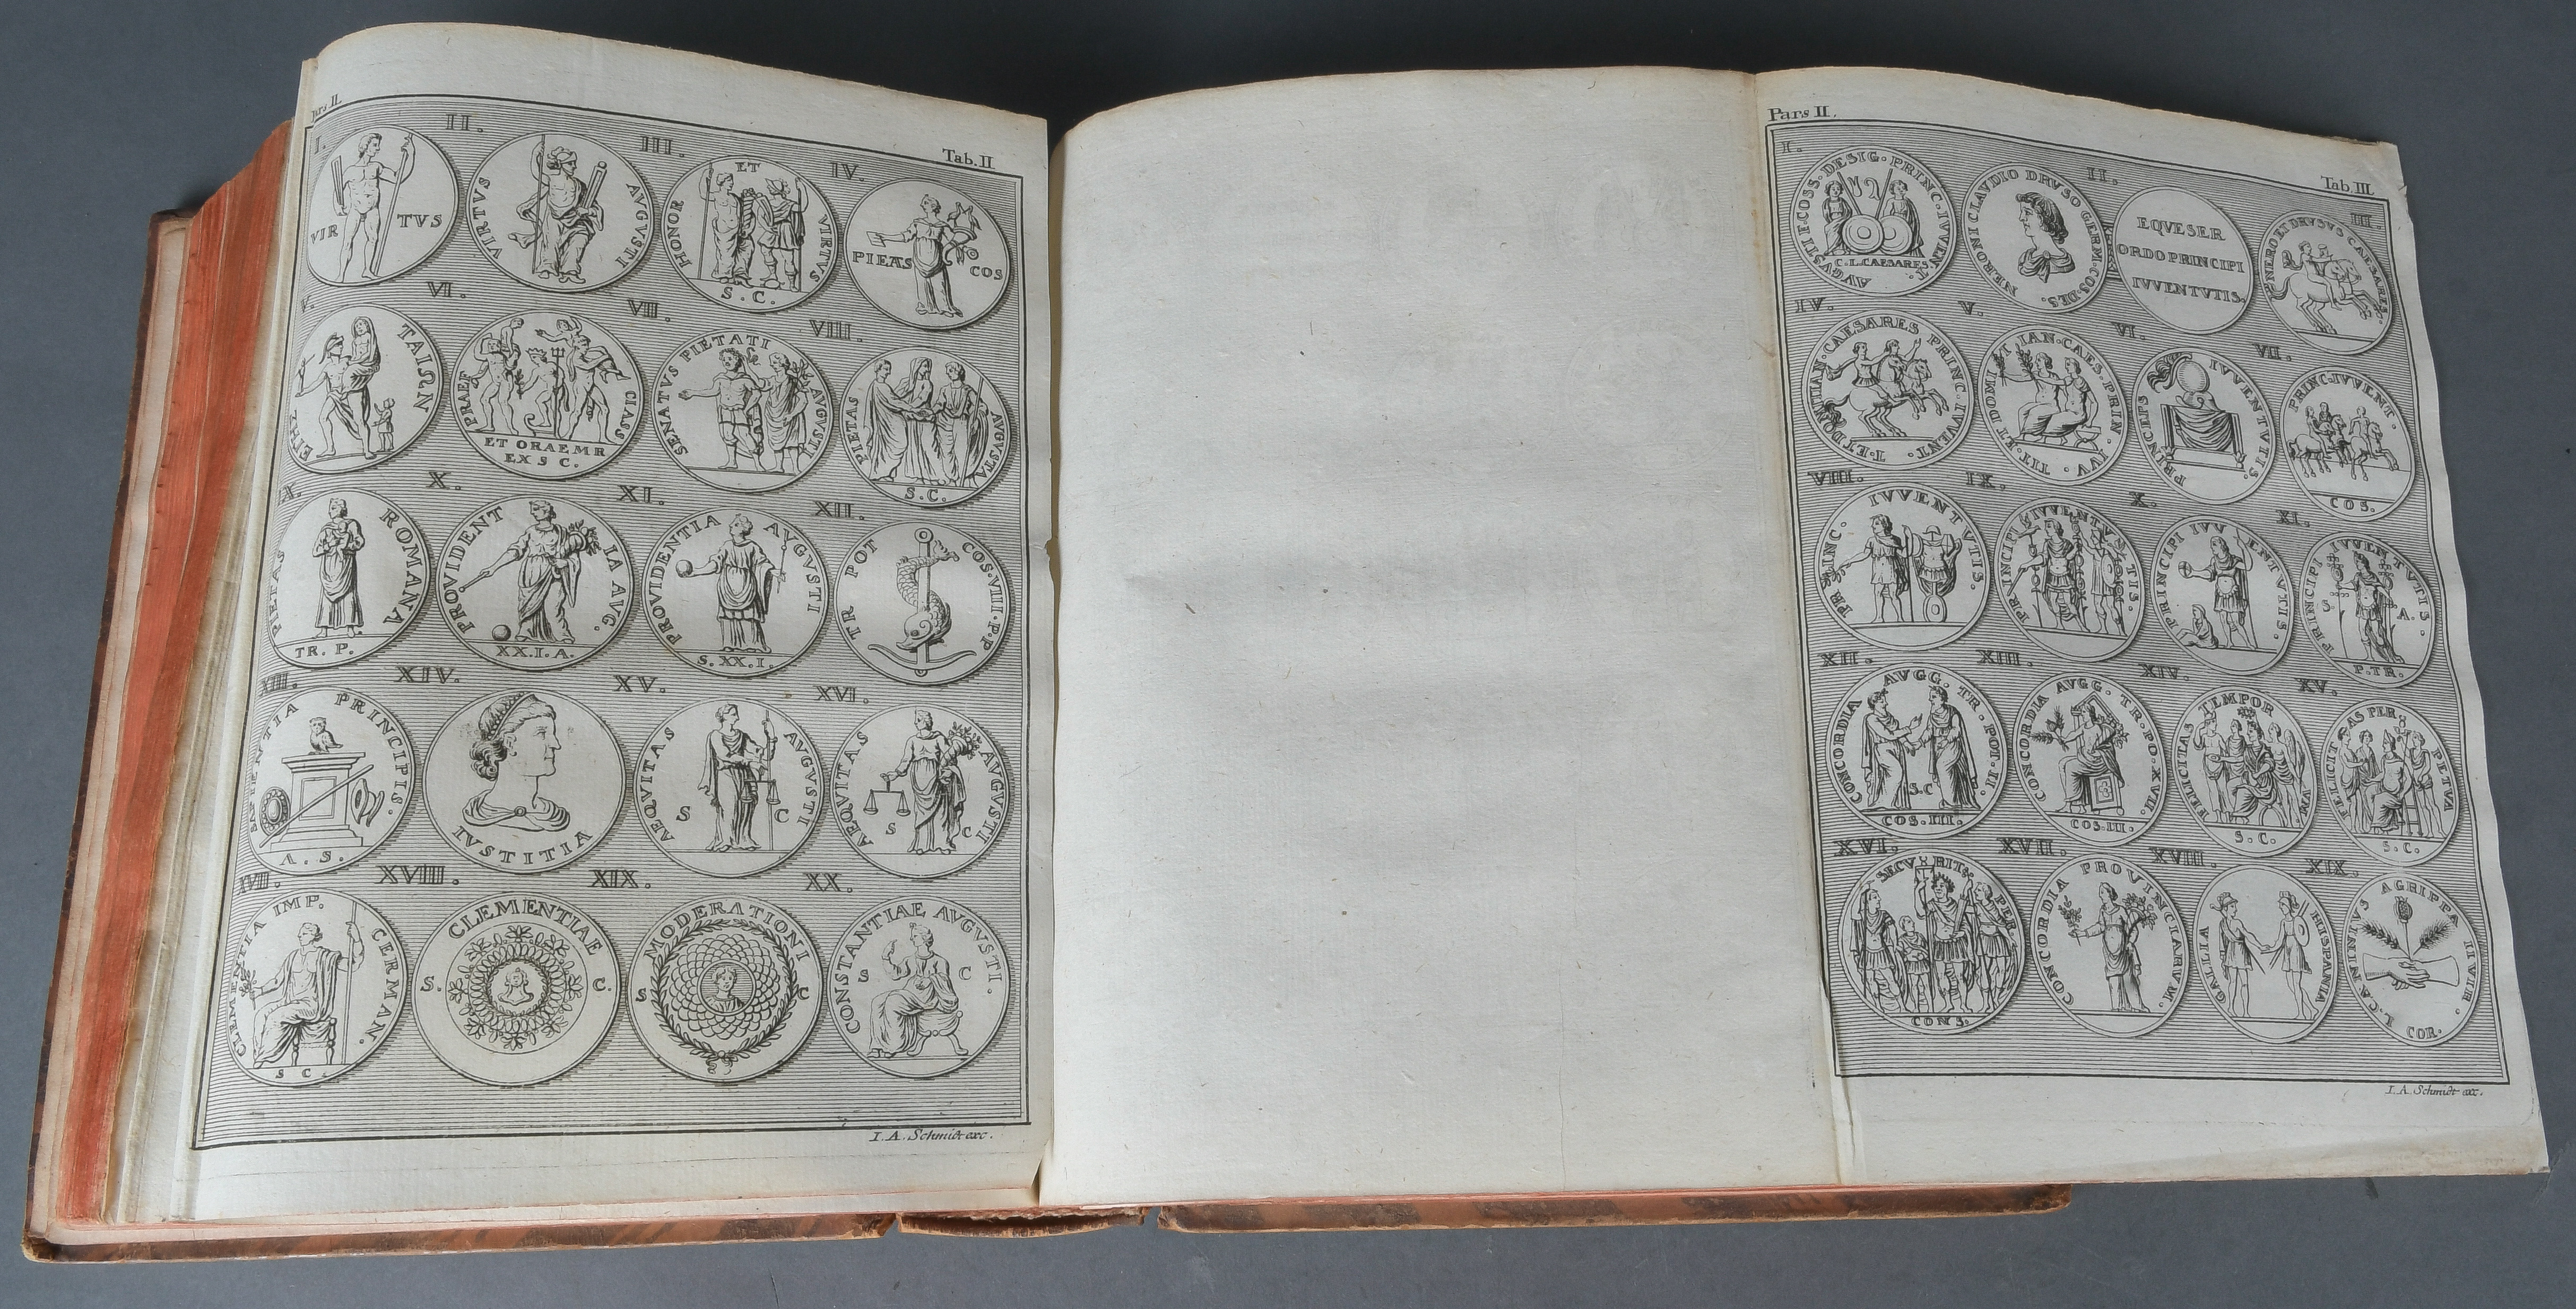 Pars II.
Tab. II
I. II. III. IV.
VIR TVS
VIRTVS AVGVSTI
HONOR ET VIRTVS
S. C.
PIEAS COS
V. VI. VII. VIII.
ΤΑΙΩΝ
PRAEF CLASS
ET ORAE MR
EX S C.
SENATVS PIETATI AVGVSTI
PIETAS AVGVSTA
S. C.
IX. X. XI. XII.
PIETAS ROMANA
TR. P.
PROVIDENT IA AVG.
XX. I. A.
PROVIDENTIA AVGVSTI
S. XX. I.
TR POT COS. VIII. P. P
XIII. XIV. XV. XVI.
PRINCIPIS.
A. S.
IVSTITIA
AEQVITAS AVGVSTI
S C
AEQVITAS AVGVSTI
S C
XVII. XVIII. XIX. XX.
CLEMENTIA IMP. GERMAN.
S C
CLEMENTIAE
S. C.
MODERATIONI
S C
CONSTANTIAE AVGVSTI.
S C
I. A. Schmidt exc.
Pars II.
Tab. III.
I. II. III.
AVGVSTI F. COSS. DESIG. PRINC. IVVENT.
C. L. CAESARES.
NERONI CLAVDIO DRVSO GERM. COS. DES.
EQVESER
ORDO PRINCIPI
IVVENTVTIS.
NERO ET DRVSVS CAESARES.
IV. V. VI. VII.
T. ET DOMITIAN. CAESARES PRINC. IVVENT.
TIT. ET DOMI IAN. CAES. PRIN. IVV
PRINCEPS IVVENTVTIS.
PRINC. IVVENT.
COS.
VIII. IX. X. XI.
PRINC. IVVENTVTIS.
PRINCIPI IVVENTVTIS.
PRINCIPI IVVENTVTIS.
PRINCIPI IVVENTVTIS.
S A.
P. TR.
XII. XIII. XIV. XV.
CONCORDIA AVGG. TR. POT. II.
S. C
COS. III.
CONCORDIA AVGG. TR. PO. XVII.
COS. III.
FELICITAS TEMPOR VM
S. C.
FELICITAS PERPETVA
S. C.
XVI. XVII. XVIII. XIX.
SECVRIT PER
CONS.
CONCORDIA PROVINCIARVM.
GALLIA HISPANIA
L. CANINIVS AGRIPPA II VIR.
COR.
I. A. Schmidt exc.